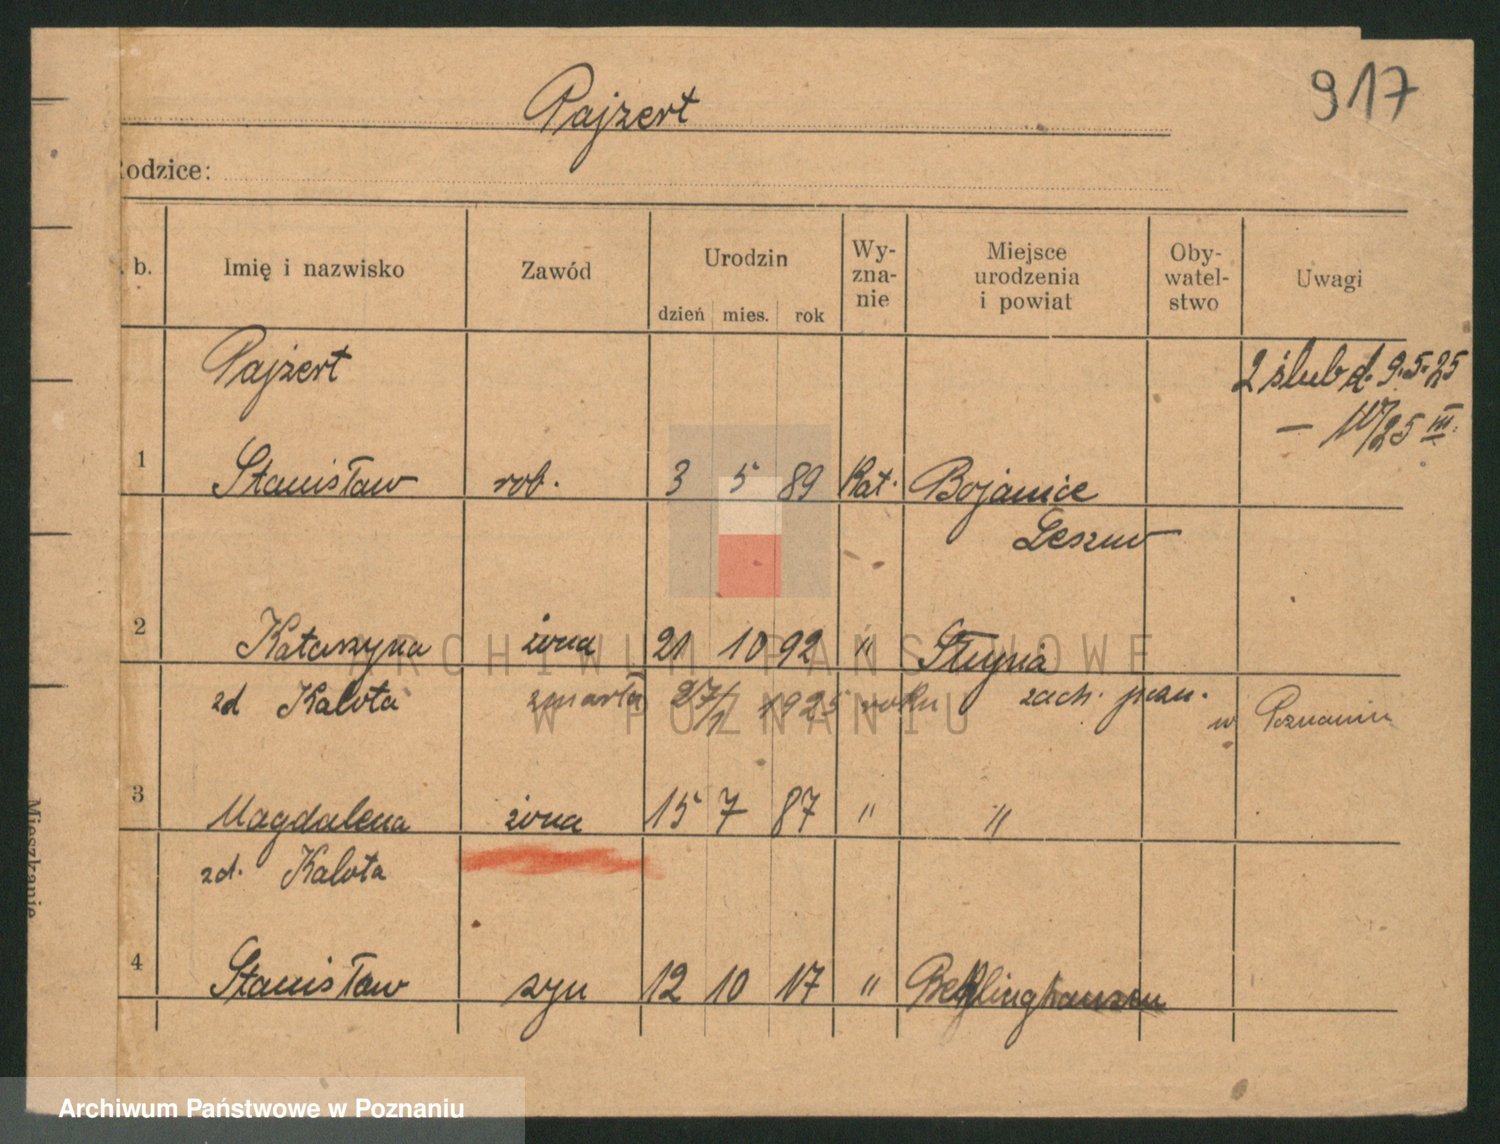 917
Pajzert
Rodzice:
b. Imię i nazwisko Zawód Urodzin dzień mies. rok Wy-zna-nie Miejsce urodzenia i powiat Oby-watel-stwo Uwagi
Pajżert 2 ślub d. 9.5.25
— 25 III.
1 Stanisław rob. 3 5 89 Kat. Bojanice
Leszno
2 Katarzyna żona 21 10 92 " Słupia
zd Kalota zmarła 27/1 1925 roku zach. pozn.
w Poznaniu
3 Magdalena żona 15 7 87 " "
zd. Kalota
4 Stanisław syn 12 10 17 "
Mieszkanie
ARCHIWUM PAŃSTWOWE
W POZNANIU
Archiwum Państwowe w Poznaniu